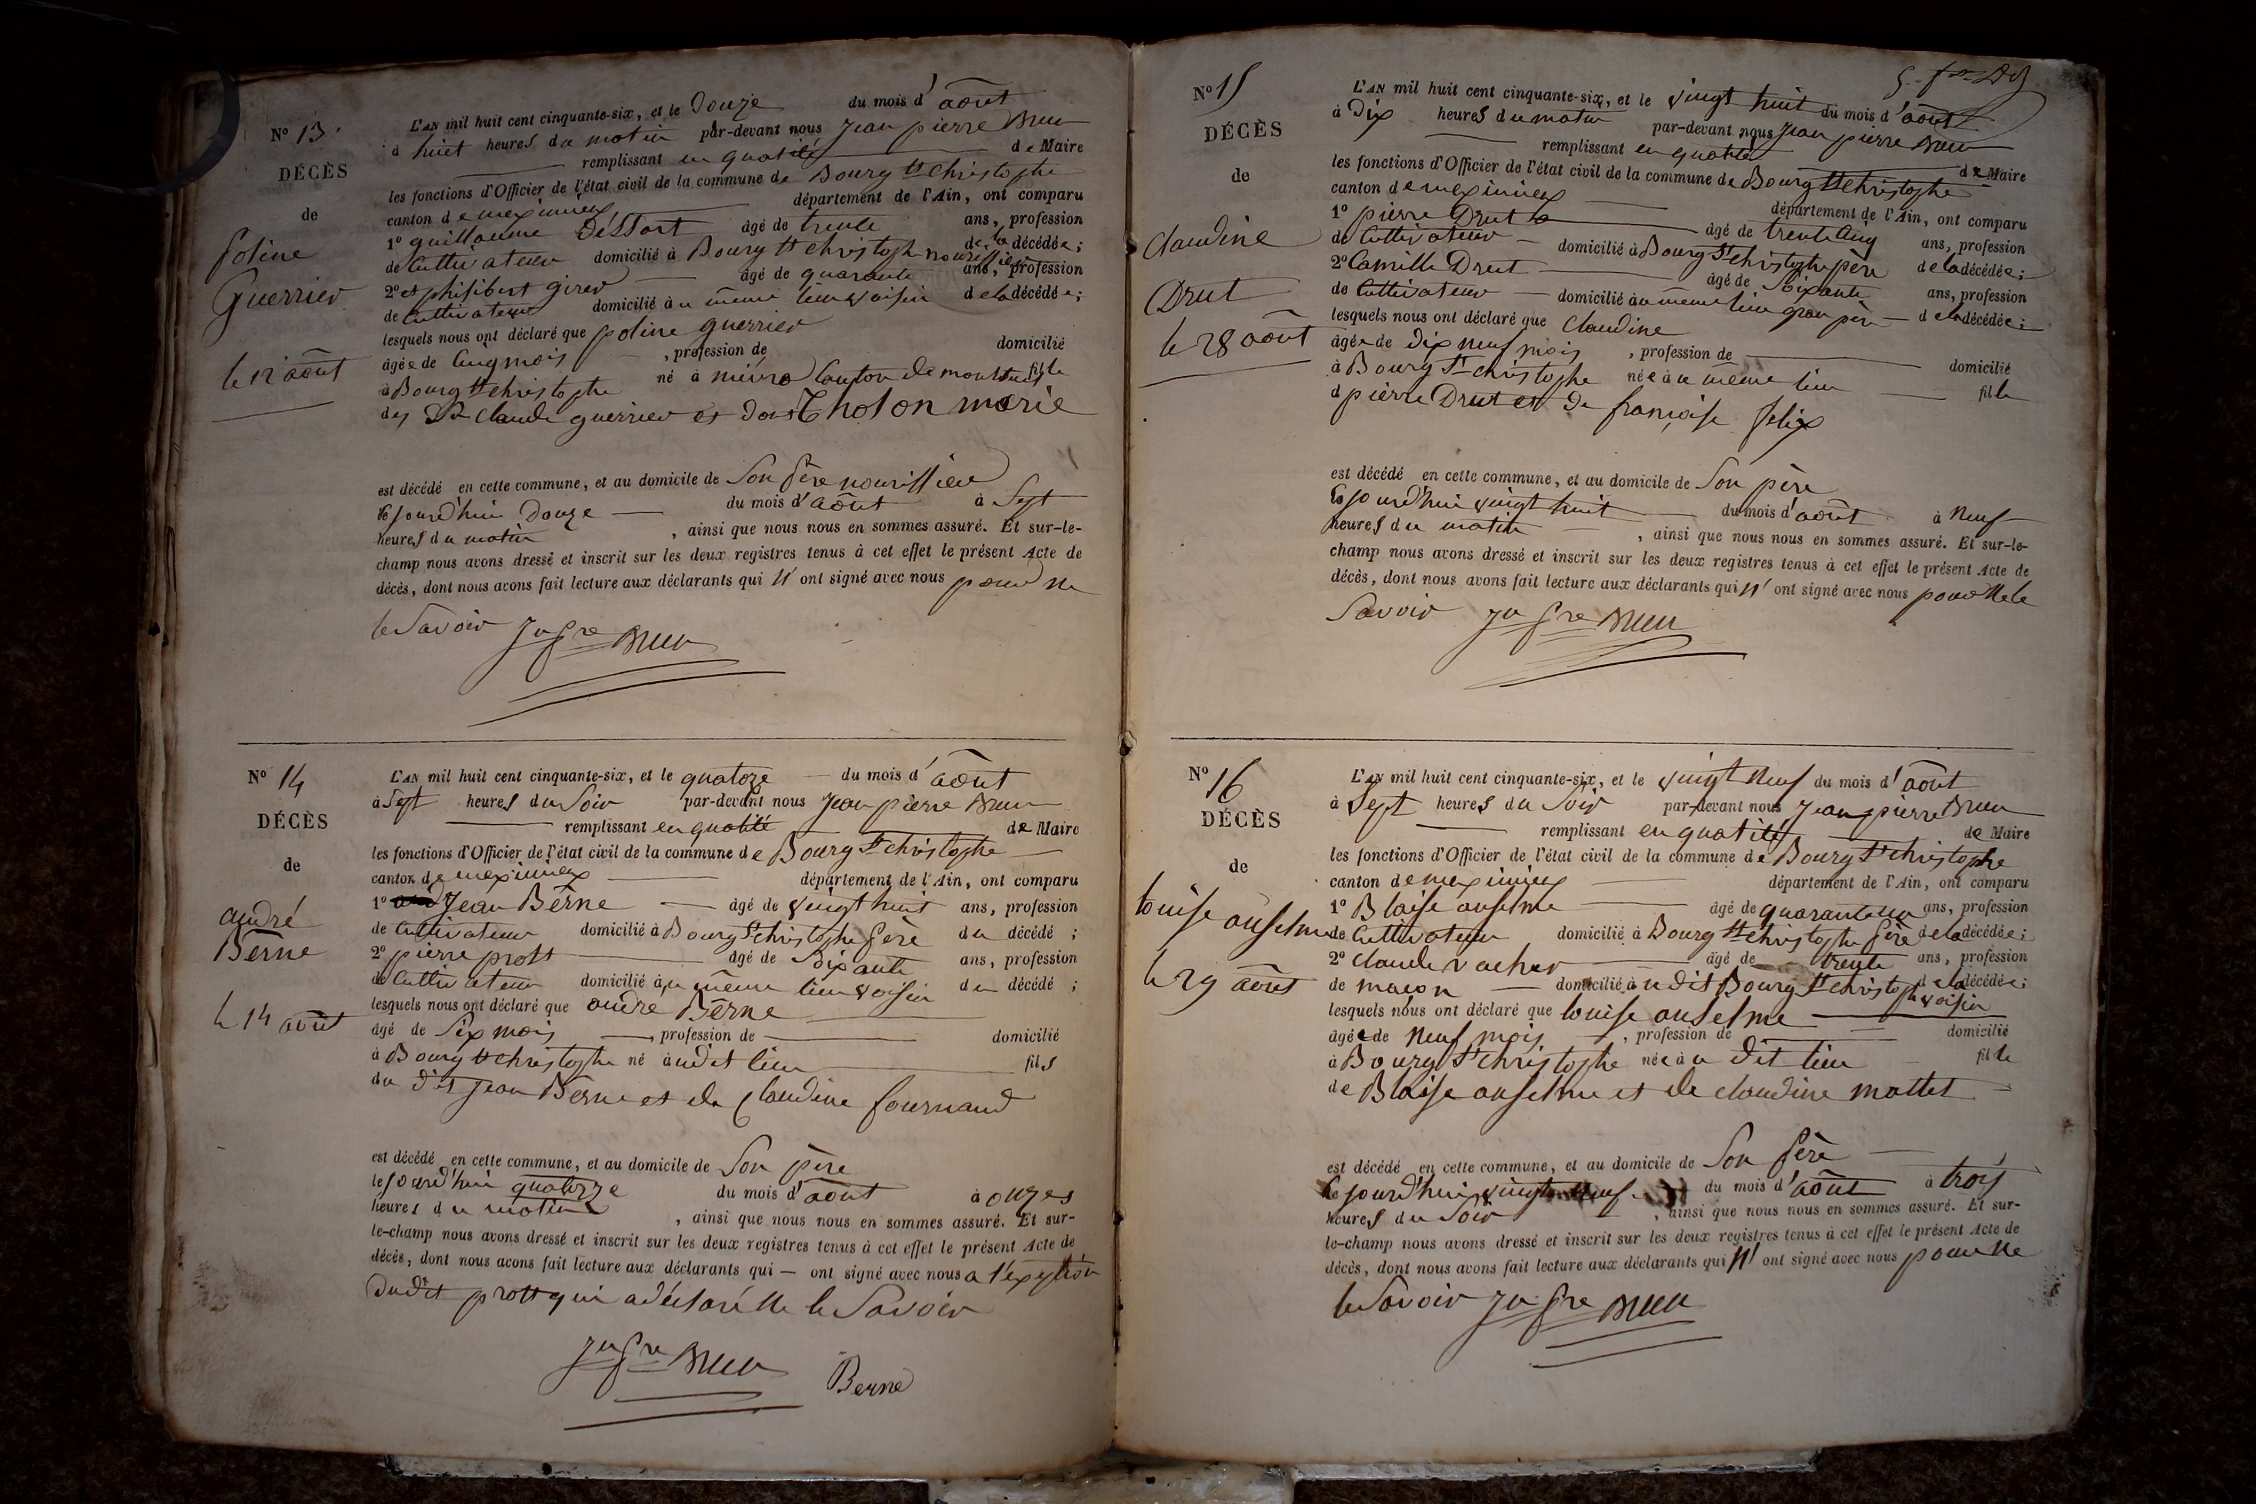 N° 13.
DÉCÈS
de
poline
Guerrier
le 12 août
L'AN mil huit cent cinquante-six, et le douze du mois d'août
à huit heures du matin par-devant nous Jean pierre Brun
remplissant en qualité de Maire
les fonctions d'Officier de l'état civil de la commune de Bourg St christophe
canton de meximieux département de l'Ain, ont comparu
1° guillaume âgé de trente ans, profession
de Cultivateur domicilié à Bourg St christophe nourissier de la décédée;
2° et philibert girer âgé de quarante ans, profession
de Cultivateur domicilié au même lieu voisin de la décédée;
lesquels nous ont déclaré que poline guerrier
âgée de Cinq mois , profession de domicilié
à Bourg St christophe né à canton de fille
des Sr Claude guerrier et Tholon marie
est décédé en cette commune, et au domicile de Son père nourissier
le jourd'hui douze du mois d'août à Sept
heures du matin , ainsi que nous nous en sommes assuré. Et sur-le-
champ nous avons dressé et inscrit sur les deux registres tenus à cet effet le présent Acte de
décès, dont nous avons fait lecture aux déclarants qui n'ont signé avec nous pour ne
le Savoir Jn pre Brun
N° 14
DÉCÈS
de
andré
Berne
le 14 août
L'AN mil huit cent cinquante-six, et le quatoze du mois d'août
à Sept heures du Soir par-devant nous Jean pierre Brun
remplissant en qualité de Maire
les fonctions d'Officier de l'état civil de la commune de Bourg St christophe
canton de meximieux département de l'Ain, ont comparu
1° Jean Berne âgé de vingt huit ans, profession
de Cultivateur domicilié à Bourg St christophe père du décédé ;
2° pierre prost âgé de Soixante ans, profession
de Cultivateur domicilié au même lieu voisin du décédé ;
lesquels nous ont déclaré que andre Berne
âgé de Six mois , profession de domicilié
à Bourg St christophe né audit lieu fils
du dit Jean Berne et de Claudine fournand
est décédé en cette commune, et au domicile de Son père
le jourd'hui quatorze du mois d'août à onzes
heures du matin , ainsi que nous nous en sommes assuré. Et sur-
le-champ nous avons dressé et inscrit sur les deux registres tenus à cet effet le présent Acte de
décès, dont nous avons fait lecture aux déclarants qui — ont signé avec nous a l'exeption
dudit prost qui a déclaré ne le Savoir
Jn pre Brun Berne
N° 15
DÉCÈS
de
Claudine
Drut
le 28 août
L'AN mil huit cent cinquante-six, et le vingt huit du mois d'août
à dix heures du matin par-devant nous Jean pierre Brun
remplissant en qualité de Maire
les fonctions d'Officier de l'état civil de la commune de Bourg St christophe
canton de meximieux département de l'Ain, ont comparu
1° pierre Drut âgé de trente cinq ans, profession
de Cultivateur domicilié à Bourg St christophe père de la décédée;
2° Camille Drut âgé de Soixante ans, profession
de Cultivateur domicilié au même lieu gran père de la décédée;
lesquels nous ont déclaré que Claudine
âgée de dix neuf mois , profession de domicilié
à Bourg St christophe née au même lieu fille
d pierre Drut et de françoise felix
est décédé en cette commune, et au domicile de Son père
le jourd'hui vingt huit du mois d'août à neuf
heures du matin , ainsi que nous nous en sommes assuré. Et sur-le-
champ nous avons dressé et inscrit sur les deux registres tenus à cet effet le présent Acte de
décès, dont nous avons fait lecture aux déclarants qui n'ont signé avec nous pour ne le
Savoir Jn pre Brun
N° 16
DÉCÈS
de
louise anselme
le 29 août
L'AN mil huit cent cinquante-six, et le vingt neuf du mois d'août
à Sept heures du Soir par-devant nous Jean pierre Brun
remplissant en qualité de Maire
les fonctions d'Officier de l'état civil de la commune de Bourg St christophe
canton de meximieux département de l'Ain, ont comparu
1° Blaise anselme âgé de quarante un ans, profession
de Cultivateur domicilié à Bourg St christophe père de la décédée;
2° Claude vacher âgé de trente ans, profession
de maçon domicilié au dit Bourg St christophe voisin de la décédée;
lesquels nous ont déclaré que louise anselme
âgée de neuf mois , profession de domicilié
à Bourg St christophe née au dit lieu fille
de Blaise anselme et de claudine mottet
est décédé en cette commune, et au domicile de Son père
le jourd'hui vingt neuf du mois d'août à trois
heures du Soir , ainsi que nous nous en sommes assuré. Et sur-
le-champ nous avons dressé et inscrit sur les deux registres tenus à cet effet le présent Acte de
décès, dont nous avons fait lecture aux déclarants qui n'ont signé avec nous pour ne
le Savoir Jn pre Brun